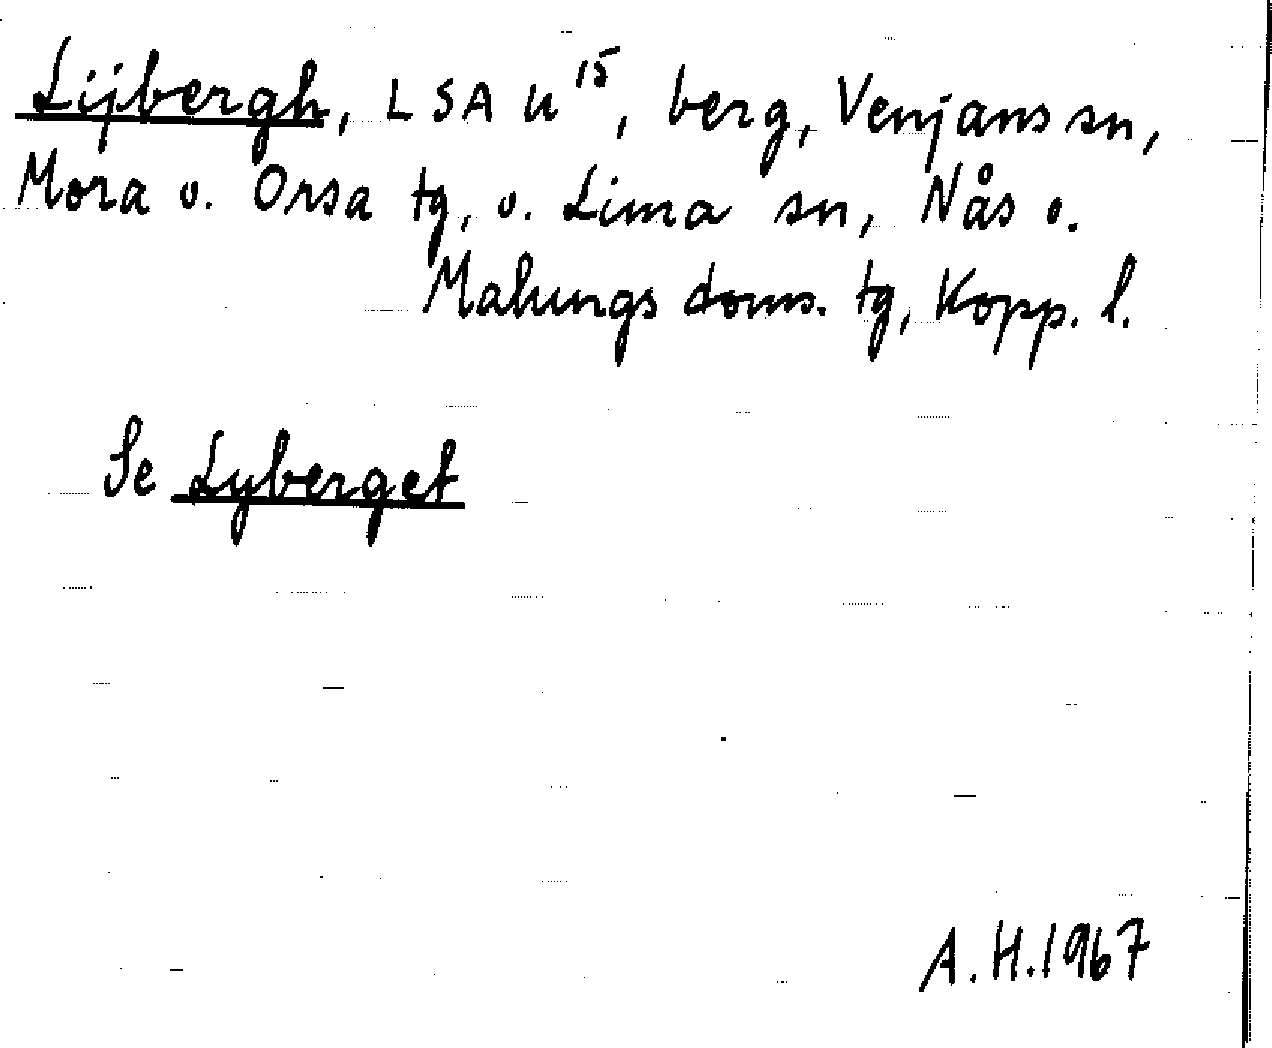 Lijbergh, LSA U¹⁵, berg, Venjans sn,
Mora o. Orsa tg, o. Lima sn, Nås o.
Malungs doms. tg, Kopp. l.
Se Lyberget
A.H. 1967